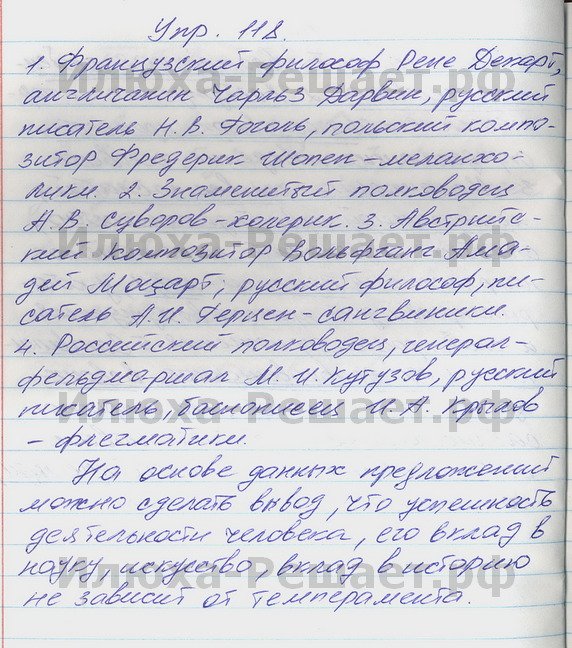 Упр. 118.
1. Французский философ Рене Декарт,
англичанин Чарльз Дарвин, русский
писатель Н. В. Гоголь, польский компо-
зитор Фредерик Шопен - меланхо-
лики. 2. Знаменитый полководец
А. В. Суворов - холерик. 3. Австрийс-
кий композитор Вольфганг Ама-
дей Моцарт, русский философ, пи-
сатель А. И. Герцен - сангвиники.
4. Российский полководец, генерал-
фельдмаршал М. И. Кутузов, русский
писатель, баснописец И. А. Крылов
- флегматики.
На основе данных предложений
можно сделать вывод, что успешность
деятельности человека, его вклад в
науку, искусство, вклад в историю
не зависит от темперамента.
Илюха-Решает.рф
Илюха-Решает.рф
Илюха-Решает.рф
Илюха-Решает.рф